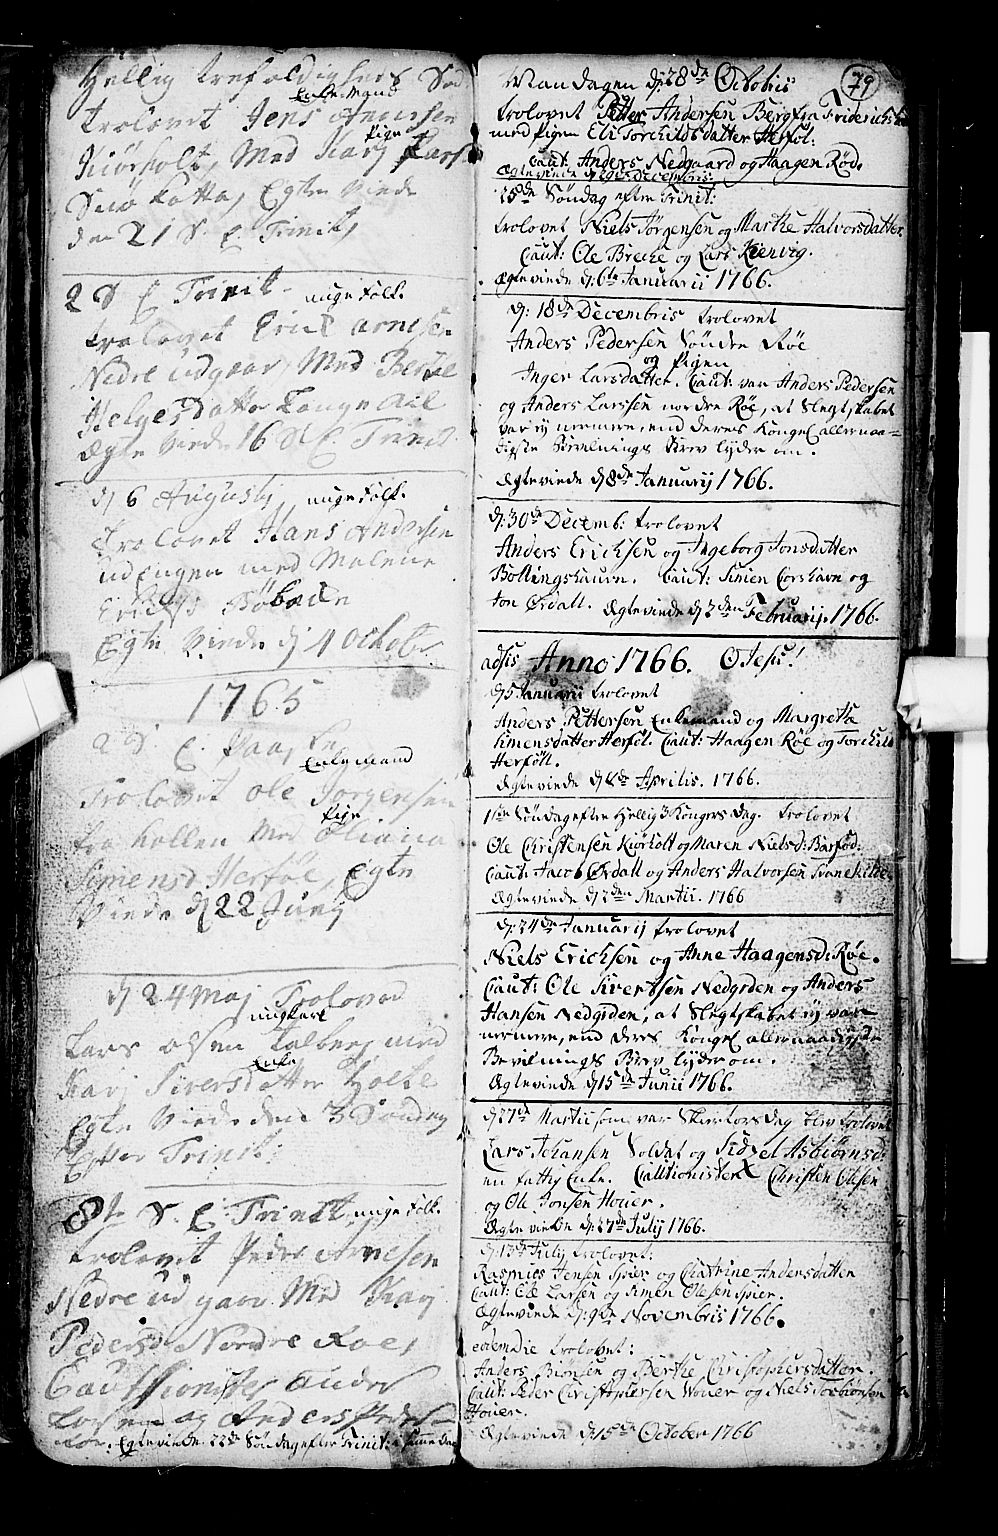 Hellig trefoldigheds Sød
Enkemand
trolovet Jens Andersen
Pige
Kiørholt, Med Karj Lars
Snøkatta, Egte Viede
den 21 S. E Trinit,
2 S E Trinit. unge Folk.
trolovet Erik arnesen
Nedre udgaar, Med Berthe
Helgesdatter Langeail
Egte Viede 16 S. E. Trinit.
dj 6 Augustj unge Folk.
Trolovet Hans Andersen
ud Engen med Malene
Erichs Bøbacke
Egte Viede dj 4 October
1765
2 S. E. Paaske
Enkemand
Trolovet Ole Jørgensen
Pige
fra Kollen Med Eliana
Simensd. Herføl, Egte
Viede dj 22 Junij
dj 24 Maj Trolovet
ungkarl
Lars olsen Talberg med
Enke
Karj Siversdatter Holte
Egte Viede den 3 Søndag
Efter Trinit:
8de S. E. Trinit, unge Folk.
trolovet Peder Arnesen
Nedre udgaar Med Karj
Pedersd. Nordre Roe,
Cautionister Anders
Larsen og Anders Peders
Røe. Egteviede 22de Søndag efter Trinit: samme Dag
79
Mandagen d: 28de Octobris
trolovet Petter Andersen Berg fra Friderichstad
med Pigen Eli Torchildsdatter Herføl:
Caut: Anders Nedgaard og Haagen Rød.
Ægteviede Decembris:
15de Søndag efter Trinit:
trolovet Niels Jørgensen og Marthe Halvorsdatter
Caut: Ole Brecke og Lars Kienvig.
Ægteviede d: 6te Januarii 1766.
d: 18de Decembris trolovet
Anders Pedersen Søndre Røe
og Pigen
Inger Larsdatter. Caut: var Anders Pedersen
og Anders Larssen nordre Røe, at Slegtskabet
var ej nærmere, end deres Kongel: allernaa-
digste Bevilnings Brev lyder om.
Ægteviede d 8de Januarij 1766.
d: 30de Decemb: trolovet
Anders Erichsen og Ingeborg Jonsdatter
Bollingshaun. Caut: Simen Corshavn og
Jon Ørdall. Ægteviede d 2den Februarij. 1766.
adsis Anno 1766. O Jesu!
d 5 Januarii trolovet
Anders Pettersen Enkemand og Margreta
Simensdatter Herføl. Caut: Haagen Røe og Torchild
Herføll.
Ægteviede d 8de Aprilis. 1766.
1ste Søndag efter Hellig 3 Kongers Dag. trolovet
Ole Christensen Kiørholt og Maren Nielsd: Barfød:
Caut: Jacob Ørdall og Anders Halvorsen Svanekilde
Ægteviede d 2den Martii. 1766
d: 24de Januarij trolovet
Niels Erichsen og Anne Haagensd: Røe.
Caut: Ole Sivertsen Nedgrden og Anders
Hansen Nedgrden, at Slegtskabet ej var
nærmere, end deres Kongel allernaadigste
Bevilnings Brev lyder om.
Ægteviede d 15de Junii 1766.
d 27de Martii som var Skiertorsdag blev trolovet
Lars Johansen Soldat og Sidzel Asbiørnsd:
en fattig Enke. Cautionister Christen Olsen
og Ole Jonsen Houer.
Ægteviede d: 27de Julij 1766.
d: 13de July trolovet:
Rasmus Jensen Spier og Chatrine Andersdatter
Caut: Ole Larsen og Simen Olsen Spier.
Ægteviede d: 9de Novembris 1766.
eodem die trolovet:
Anders Biørnsen og Berthe Christophersdatter.
Caut: Peder Christophersen Houer og Niels Torbiørnsen
Houer.
Ægteviede d 15de October 1766